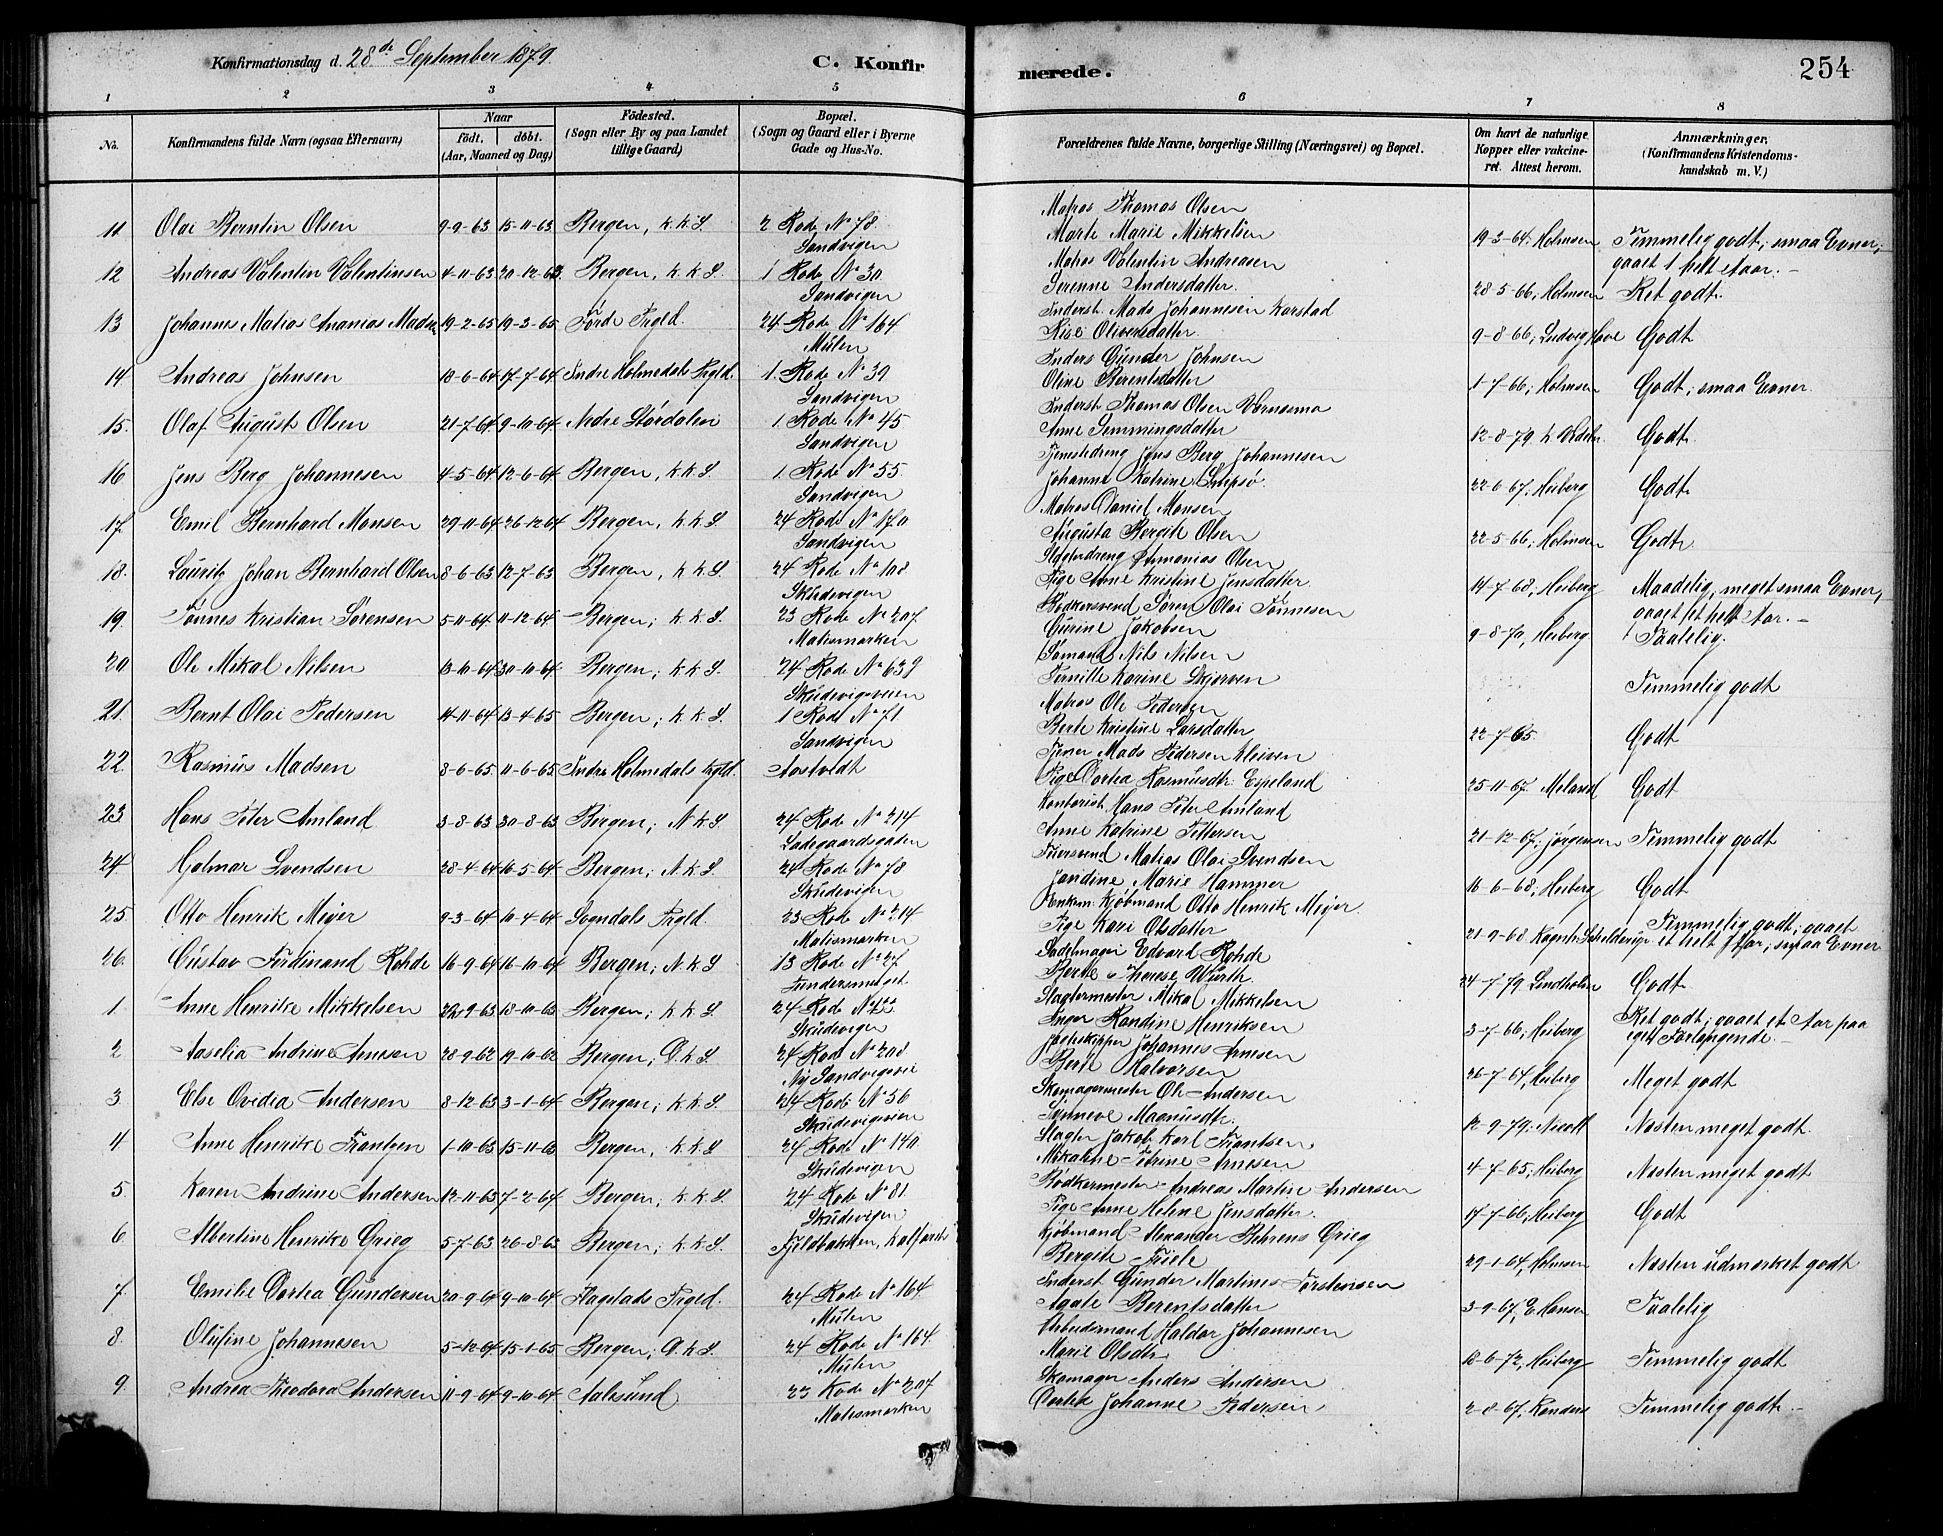 Konfirmationsdag d. 28de September 1879.
C. Konfirmerede.
254
1 2 3 4 5 6 7 8
No. Konfirmandens fulde Navn (ogsaa Efternavn) Naar födt. döbt. (Aar, Maaned og Dag) Födested. (Sogn eller By og paa Landet tillige Gaard) Bopæl. (Sogn og Gaard eller i Byerne Gade og Hus-No. Forældrenes fulde Navne, borgerlige Stilling (Næringsvei) og Bopæl. Om havt de naturlige Kopper eller vakcineret. Attest herom. Anmærkninger. (Konfirmandens Kristendomskundskab m. V.)
11. Olai Berntin Olsen 9-9-63 15-11-63 Bergen, K.K.S. 2 Rode No 78 Sandvigen Matros Thomas Olsen Marte Marie Mikkelsen 19-3-64; Holmsen Temmelig godt; smaa Evner; gaaet 1 helt Aar. -
12 Andreas Valentin Valentinsen 4-11-63 20-12-63 Bergen, K.K.S. 1 Rode No 30 Sandvigen Matros Valentin Andreasen Serenne Andersdatter. 28-5-66, Holmsen Ret godt.
13 Johannes Matias Ananias Madsen 19-2-65 19-3-65 Førde Prgld. 24 Rode No 164 Mulen Inderst Mads Johannesen Karstad Rise Oliversdatter 9-8-66; Ludvig Hove Godt
14. Andreas Johnsen 18-6-64 17-7-64 Indre Holmedals Prgld. 1. Rode No 39 Sandvigen Inders Gunder Johnsen Oline Berentsdatter 1-7-66; Holmsen Godt; smaa Evner.
15. Olaf August Olsen 21-7-64 9-10-64 Nedre Størdalen 1. Rode No 45 Sandvigen Inderst Thomas Olsen Anne Semmingsdatter 12-8-79 Godt
16 Jens Berg Johannesen 4-5-64 12-6-64 Bergen, K.K.S. 1. Rode No 55. Sandvigen Tjenstedreng Jens Berg Johannesen Johanne Katrine 22-6-67, Heiberg Godt
17. Emil Bernhard Monsen 29-11-64 26-12-64 Bergen, K.K.S. 24 Rode No 170 Sandvigen Matros Daniel Monsen Augusta Bergite Olsen 22-5-66; Holmsen Godt
18. Lauritz Johan Bernhard Olsen 8-6-63 12-7-63 Bergen, K.K.S. 24 Rode No 108 Skudevigen Ammonias Olsen Pige Anne Kristine Jensdatter 14-7-68; Heiberg Maadelig, meget smaa Evner, gaaet et helt Aar. -
19. Tønnes Kristian Sørensen 5-11-64 11-12-64 Bergen; K.K.S. 23 Rode No 207 Matismarken Bødkersvend Søren Olai Tønnesen Gurine Jakobsen 9-8-70, Heiberg Taalelig.
20 Ole Mikal Nilsen 13-10-64 30-10-64 Bergen; K.K.S. 24 Rode No 639 Skudevigsveien Sømand Nils Nilsen Pernille Karine Skjerven Temmelig godt
21. Bernt Olai Pedersen 14-11-64 13-4-65 Bergen; K.K.S. 1 Rode No 71 Sandvigen Matros Ole Pedersen Berte Kristine Larsdatter 22-7-65 Godt
22. Rasmus Madsen 8-6-65 11-6-65 Indre Holmedals Prgld. Aastvedt Tjener Mads Pedersen Kleiven Pige Dortea Rasmusdtr. Espeland 25-11-67 Meland Godt
23 Hans Peter Amland 3-8-63 30-8-63 Bergen; N.K.S. 24 Rode No 214 Ladegaardsgaden Kontorist Hans Peter Amland Anne Katrine Pettersen 21-12-67; Jørgensen Temmelig godt
24 Hjalmar Svendsen 28-4-64 16-5-64 Bergen; N.K.S. 24 Rode No 78 Skudevigen Matias Olai Svendsen Jandine Marie Hammer 16-6-68, Heiberg Godt
25. Otto Henrik Meyer 9-3-64 10-4-64 Sogndals Prgld. 23 Rode No 214 Matismarken Kjøbmand Otto Henrik Meyer Pige Kari Olsdatter 21-9-68 Temmelig godt; gaaet et helt Aar; smaa Evner
26. Gustav Ferdinand Rohde 16-9-64 16-10-64 Bergen; N.K.S 13 Rode No 27 Sadelmager Edvard Rohde Therese Würth 24-7-79 Lindholm Godt
1. Anne Henrikke Mikkelsen 22-9-63 18-10-63 Bergen; K.K.S 24 Rode No 422 Skudevigen Slagtermester Mikal Mikkelsen Inger Randine Henriksen 3-7-66; Heiberg Ret godt; gaaet et Aar paa eget Forlangende. -
2 Aaselia Andrine Arnesen 28-9-62 19-10-62 Bergen; D.K.S 24 Rode No 208 Ny Sandvigsvei Johannes Arnesen Berte Halvorsen 26-7-64, Heiberg Meget godt
3. Else Ovidia Andersen 8-12-63 3-1-64 Bergen; K.K.S. 24 Rode No 56 Skudevigsveien Skomagermester Ole Andersen Synneve Magnusdtr. 12-9-79; Nicoll Næsten meget godt.
4 Anne Henrikke Frantzen 1-10-63 15-11-63 Bergen, K.K.S 24 Rode No 140 Skudevigen Slagter Jakob Karl Frantsen Mikaline Petrine Arnesen 4-7-65, Heiberg Næsten meget godt
5. Karen Andrine Andersen 12-11-63 7-2-64 Bergen; K.K.S. 24 Rode No 81. Skudevigen Bødkermester Andreas Martin Andersen Pige Anne Helene Jensdatter. 17-7-66, Heiberg Godt
6 Albertine Henrikke Grieg 5-7-63 26-8-63 Bergen; K.K.S. Fjeldbakken, Kalfaret Kjøbmand Alexander Behrens Grieg Bergite Friele 29-1-64, Holmsen Næsten udmærket godt
7. Emilie Dortea Gundersen 20-9-64 9-10-64 Flagstads Prgld. 24 Rode No 164 Mulen Inderst Gunder Martines Torstensen Agate Berentsdatter 3-9-67, E. Hansen Taalelig
8. Olufine Johannesen 5-12-64 15-1-65 Bergen; D.K.S. 24 Rode No 164. Mulen Arbeidsmand Haldor Johannesen Marie Olsdtr. 18-6-72, Heiberg Temmelig godt
9. Andrea Theodora Andersen 11-9-64 9-10-64 Aalesund 23 Rode No 207 Matismarken Skomager Anders Andersen Dortea Johanne Pedersen 2-8-67, Randers Temmelig godt. -